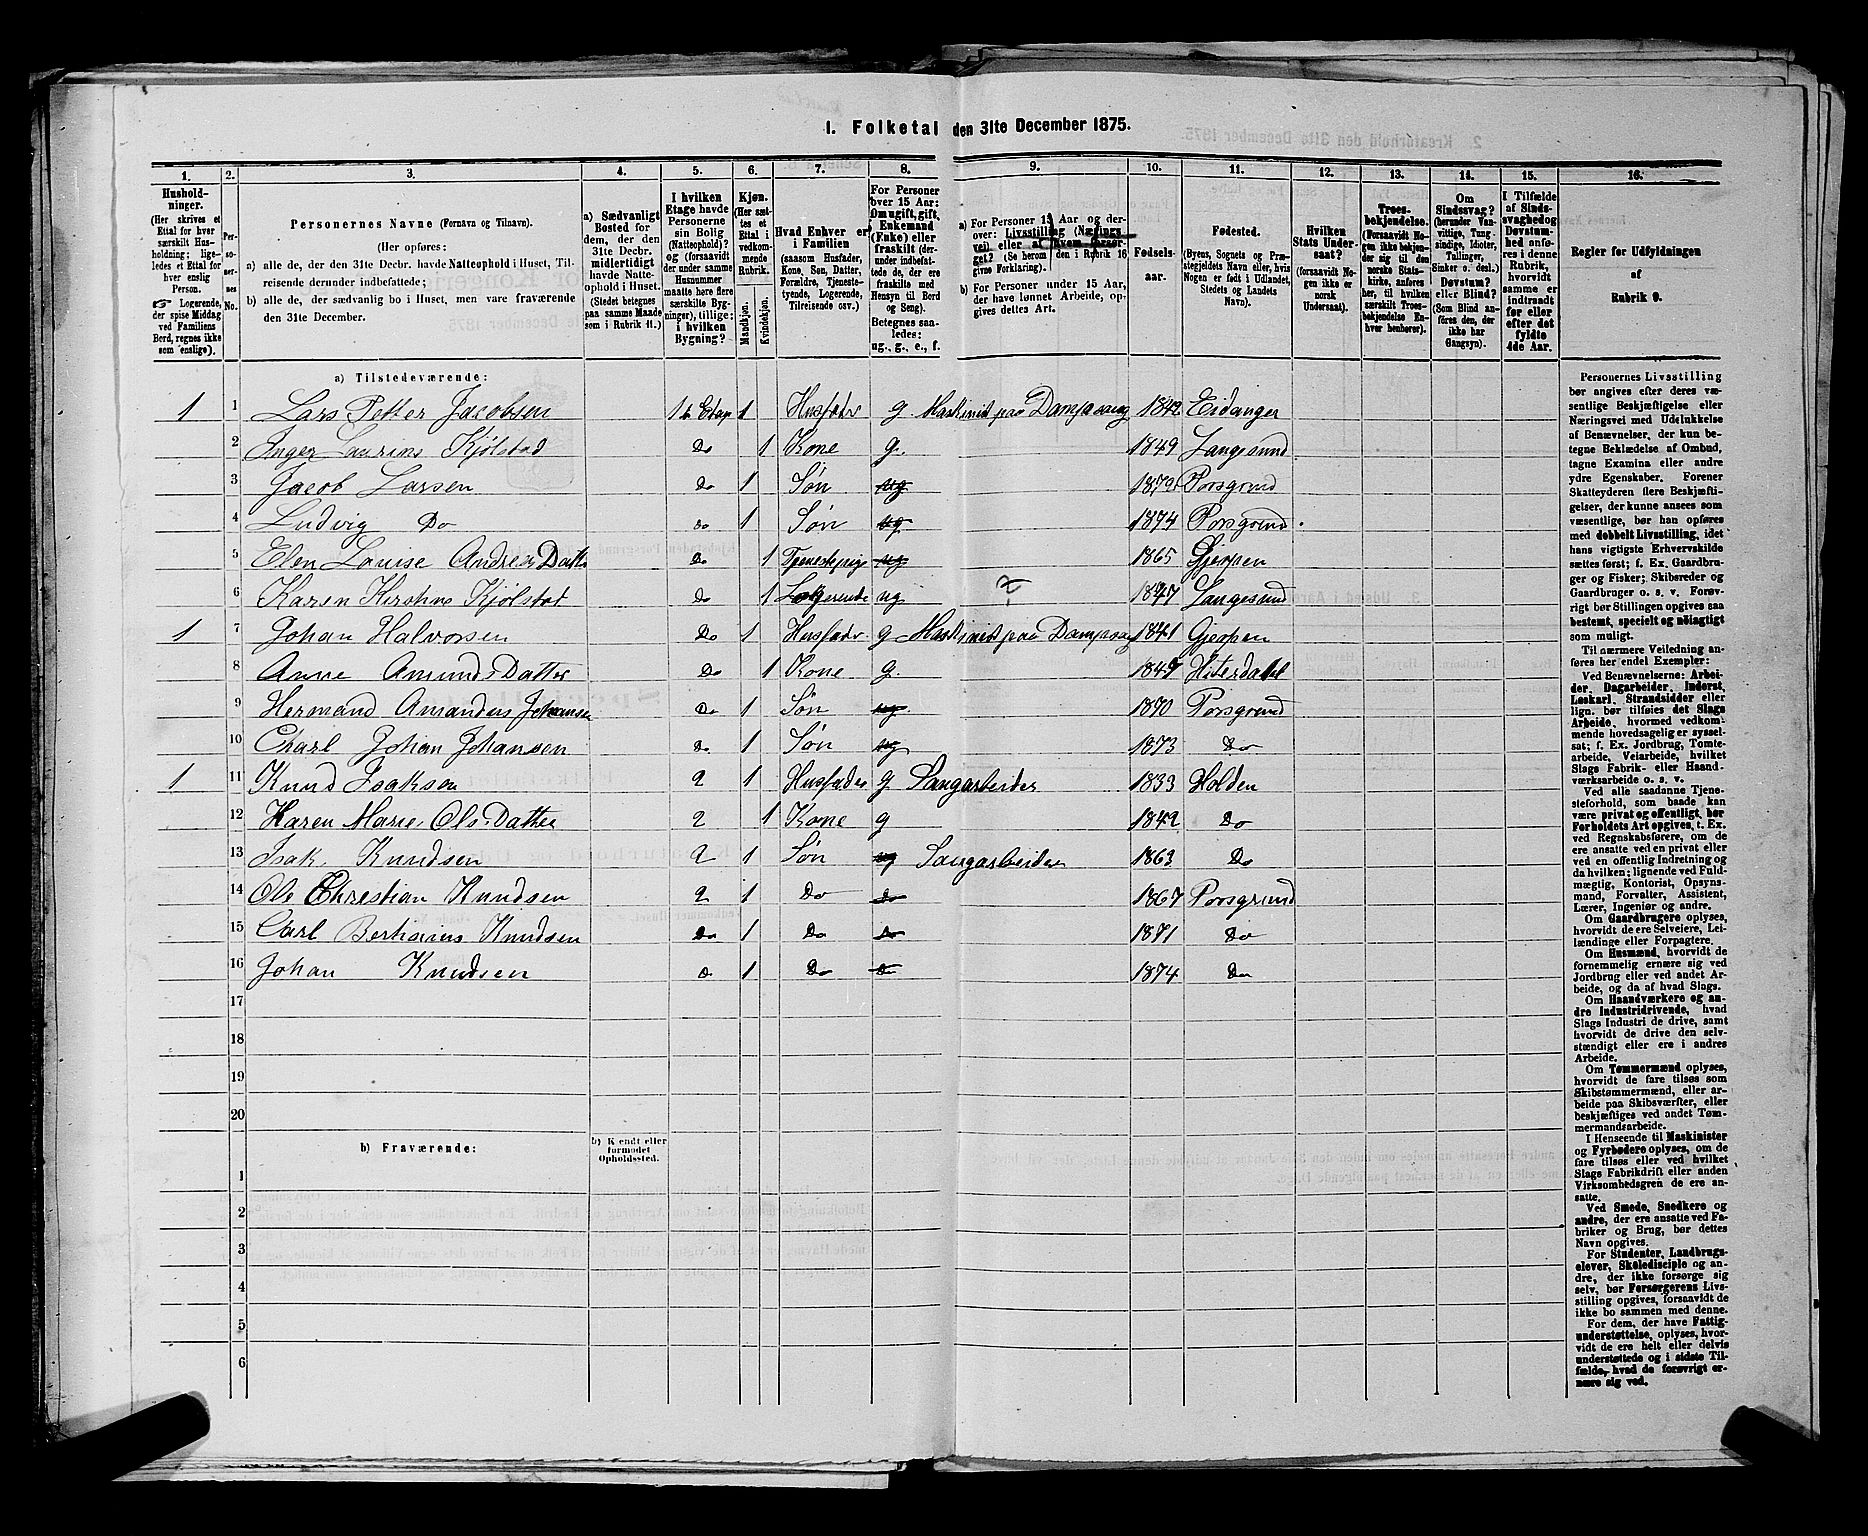 I. Folketal den 31te December 1875.
1. 2. 3. 4. 5. 6. 7. 8. 9. 10. 11. 12. 13. 14. 15. 16.
Hushold-
ninger.
(Her skrives et
Ettal for hver
særskilt Hus-
holdning; lige-
ledes et Ettal for
hver enslig
Person.
☞ Logerende,
der spise Middag
ved Familiens
Bord, regnes ikke
som enslige).
Per-
so-
ner-
nes
No.
Personernes Navne (Fornavn og Tilnavn).
(Her opføres:
a) alle de, der den 31te Decbr. havde Natteophold i Huset, Til-
reisende derunder indbefattede;
b) alle de, der sædvanlig bo i Huset, men vare fraværende
den 31te December.
a) Sædvanligt
Bosted for
dem, der den
31te Decbr.
midlertidigt
havde Natte-
ophold i Huset.
(Stedet betegnes
paa samme Maade
som i Rubrik 11.)
I hvilken
Etage havde
Personerne
sin Bolig
(Natteophold)?
og (forsaavidt
der under samme
Husnummer
maatte høre flere
særskilte Byg-
ninger), tillige:
i hvilken
Bygning?
Kjøn.
(Her sæt-
tes et
Ettal i
vedkom-
mende
Rubrik.
Mandkjøn.
Kvindekjøn.
Hvad Enhver er
i Familien
(saasom Husfader,
Kone, Søn, Datter,
Forældre, Tjeneste-
tyende, Logerende,
Tilreisende osv.)
For Personer
over 15 Aar:
Om ugift, gift,
Enkemand
(Enke) eller
fraskilt derun-
der indbefatte-
de, der ere
fraskilte med
Hensyn til Bord
og Seng).
Betegnes saa-
ledes:
ug., g., e., f.
a) For Personer 15 Aar og der-
over: Livsstilling (Nærings-
vei) eller af hvem forsør-
get? (Se herom den i Rubrik 16
givne Forklaring).
b) For Personer under 15 Aar,
der have lønnet Arbeide, op-
gives dettes Art.
Fødsels-
aar.
Fødested.
(Byens, Sognets og Præ-
stegjeldets Navn eller, hvis
Nogen er født i Udlandet,
Stedets og Landets
Navn).
Hvilken
Stats Under-
saat?
(forsaavidt No-
gen ikke er
norsk
Undersaat).
Troes-
bekjendelse.
(Forsaavidt No-
gen ikke bekjen-
der sig til den
norske Stats-
kirke, anføres
her, til hvilken
særskilt Troes-
bekjendelse En-
hver henhører).
Om
Sindssvag?
(herunder Van-
vittige, Tung-
sindige, Idioter,
Tullinger,
Sinker o. desl.)
Døvstum?
eller Blind?
(Som Blind an-
føres den, der
ikke har
Gangsyn).
I Tilfælde
af Sinds-
svaghed og
Døvstum-
hed anfø-
res i denne
Rubrik,
hvorvidt
samme er
indtraadt
før eller
efter det
fyldte
4de Aar.
Regler for Udfyldningen
af
Rubrik 9.
a) Tilstedeværende:
1 1 Lars Petter Jacobsen 1 Etage 1 Husfader g Maskinist paa Dampsaug 1842 Eidanger
2 Inger Laurine Kjølstad Do 1 Kone g. 1849 Langesund
3 Jacob Larsen Do 1 Søn ug Porsgrund
4 Ludvig Do Do 1 Søn ug 1874 Porsgrund.
5 Elen Louise Andrea Datter Do 1 Tjenestepige ug 1865 Gjerpen
6 Karen Kirstine Kjølstad Do 1 Logerende ug 1847 Langesund
1 7 Johan Halvorsen Do 1 Husfader g Maskinist paa Dampsaug 1841 Gjerpen
8 Anne Amunds Datter Do 1 Kone g. Hiterdahl
9 Hermand Amandus Johansen Do 1 Søn ug. 1870 Porsgrund
10 Charl Johan Johansen Do 1 Søn ug 1873 Do
1 11 Knud Isaksen 2 1 Husfader g Saugarbeider 1833 Holden
12 Karen Marie Ols Datter 2 1 Kone g 1842 Do
13 Isak Knudsen 2 1 Søn ug Saugarbeider 1863 Do
14 Ole Christian Knudsen 2 1 Do Do 1867 Porsgrund
15 Carl Bertinius Knudsen Do 1 Do Do 1871 Do
16 Johan Knudsen Do 1 Do Do 1874 Do
17
18
19
20
b) Fraværende:
b) Kjendt eller
formodet
Opholdssted.
1
2
3
4
5
6
Personernes Livsstilling
bør angives efter deres væ-
sentlige Beskjæftigelse eller
Næringsvei med Udelukkelse
af Benævnelser, der kun be-
tegne Beklædelse af Ombud,
tagne Examina eller andre
ydre Egenskaber. Forener
Skatteyderen flere Beskjæfti-
gelser, der kunne ansees som
væsentlige, bør han opføres
med dobbelt Livsstilling, idet
hans vigtigste Erhvervskilde
sættes først; f. Ex. Gaardbru-
ger og Fisker; Skibsreder og
Gaardbruger o. s. v. Forøv-
rigt bør Stillingen opgives saa
bestemt, specielt og nøiagtigt
som muligt.
Til nærmere Veiledning an-
føres her endel Exempler:
Ved Benævnelserne: Arbei-
der, Dagarbeider, Inderst,
Løskarl, Strandsidder eller
lign. bør tilføies det Slags
Arbeide, hvormed vedkom-
mende hovedsagelig er syssel-
sat; f. Ex. Jordbrug, Tomte-
arbeide, Veiarbeide, hvilket
Slags Fabrik- eller Haand-
værksarbeide o. s. v.
Ved alle saadanne Tjene-
steforhold, som baade kan
være privat og offentligt, bør
Forholdets Art opgives, t. Ex.
ved Regnskabsførere, om de
ere ansatte ved en privat eller
ved en offentlig Indretning og
da hvilken; lignende ved Fuld-
mægtig, Kontorist, Opsyns-
mand, Forvalter, Assistent,
Lærer, Ingeniør og andre.
Om Gaardbrugere oplyses,
hvorvidt de ere Selveiere, Lei-
lændinge eller Forpagtere.
Om Husmænd, hvorvidt de
fornemmelig ernære sig ved
Jordbrug eller ved andet Ar-
beide, og da af hvad Slags.
Om Haandværkere og an-
dre Industridrivende, hvad
Slags Industri de drive, samt
hvorvidt de drive den selv-
stændigt eller ere i andres
Arbeide.
Om Tømmermænd oplyses,
hvorvidt de fare tilsøs som
Skibstømmermænd, eller ar-
beide paa Skibsværfter, eller
beskjæftiges ved andet Tøm-
mermandsarbeide.
I Henseende til Maskinister
og Fyrbødere oplyses, om de
fare tilsøs eller ved hvilket
Slags Fabrikdrift eller anden
Virksomhedsgren de ere an-
satte.
Ved Smede, Snedkere og
andre, der ere ansatte ved Fa-
briker og Brug, bør dettes
Navn opgives.
For Studenter, Landbrugs-
elever, Skoledisciple og an-
dre, der ikke forsørge sig
selv, bør Forsørgerens Livs-
stilling opgives, forsaavidt de
ikke bo sammen med denne.
For dem, der have Fattig-
understøttelse, oplyses, hvor-
vidt de ere helt eller delvis
understøttede og i sidste Til-
fælde, hvad de forøvrigt er-
nære sig ved.